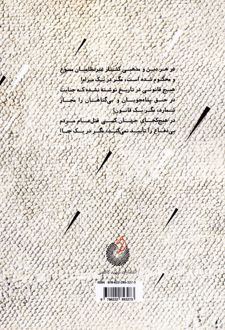 در هر دین و مذهبی کشتار غیرنظامیان ممنوع
و محکوم شده است، مگر در یک مرام!
هیچ قانونی در تاریخ نوشته نشده که جنایت
در حق پناه‌جویان و بی‌گناهان را مجاز
شمارد، مگر یک قانون!
در هیچ‌کجای جهان کسی قتل‌عام مردم
بی‌دفاع را تأیید نمی‌کند، مگر در یک جا!